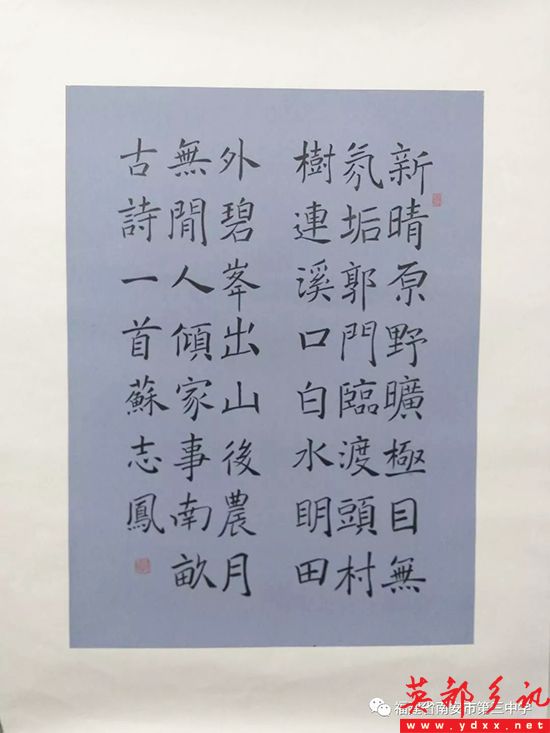 新晴原野曠極目無
氛垢郭門臨渡頭村
樹連溪口白水明田
外碧峯出山後農月
無閒人傾家事南畝
古詩一首蘇志鳳
福建省南安市第三中学
英都乡讯
www.ydxx.net